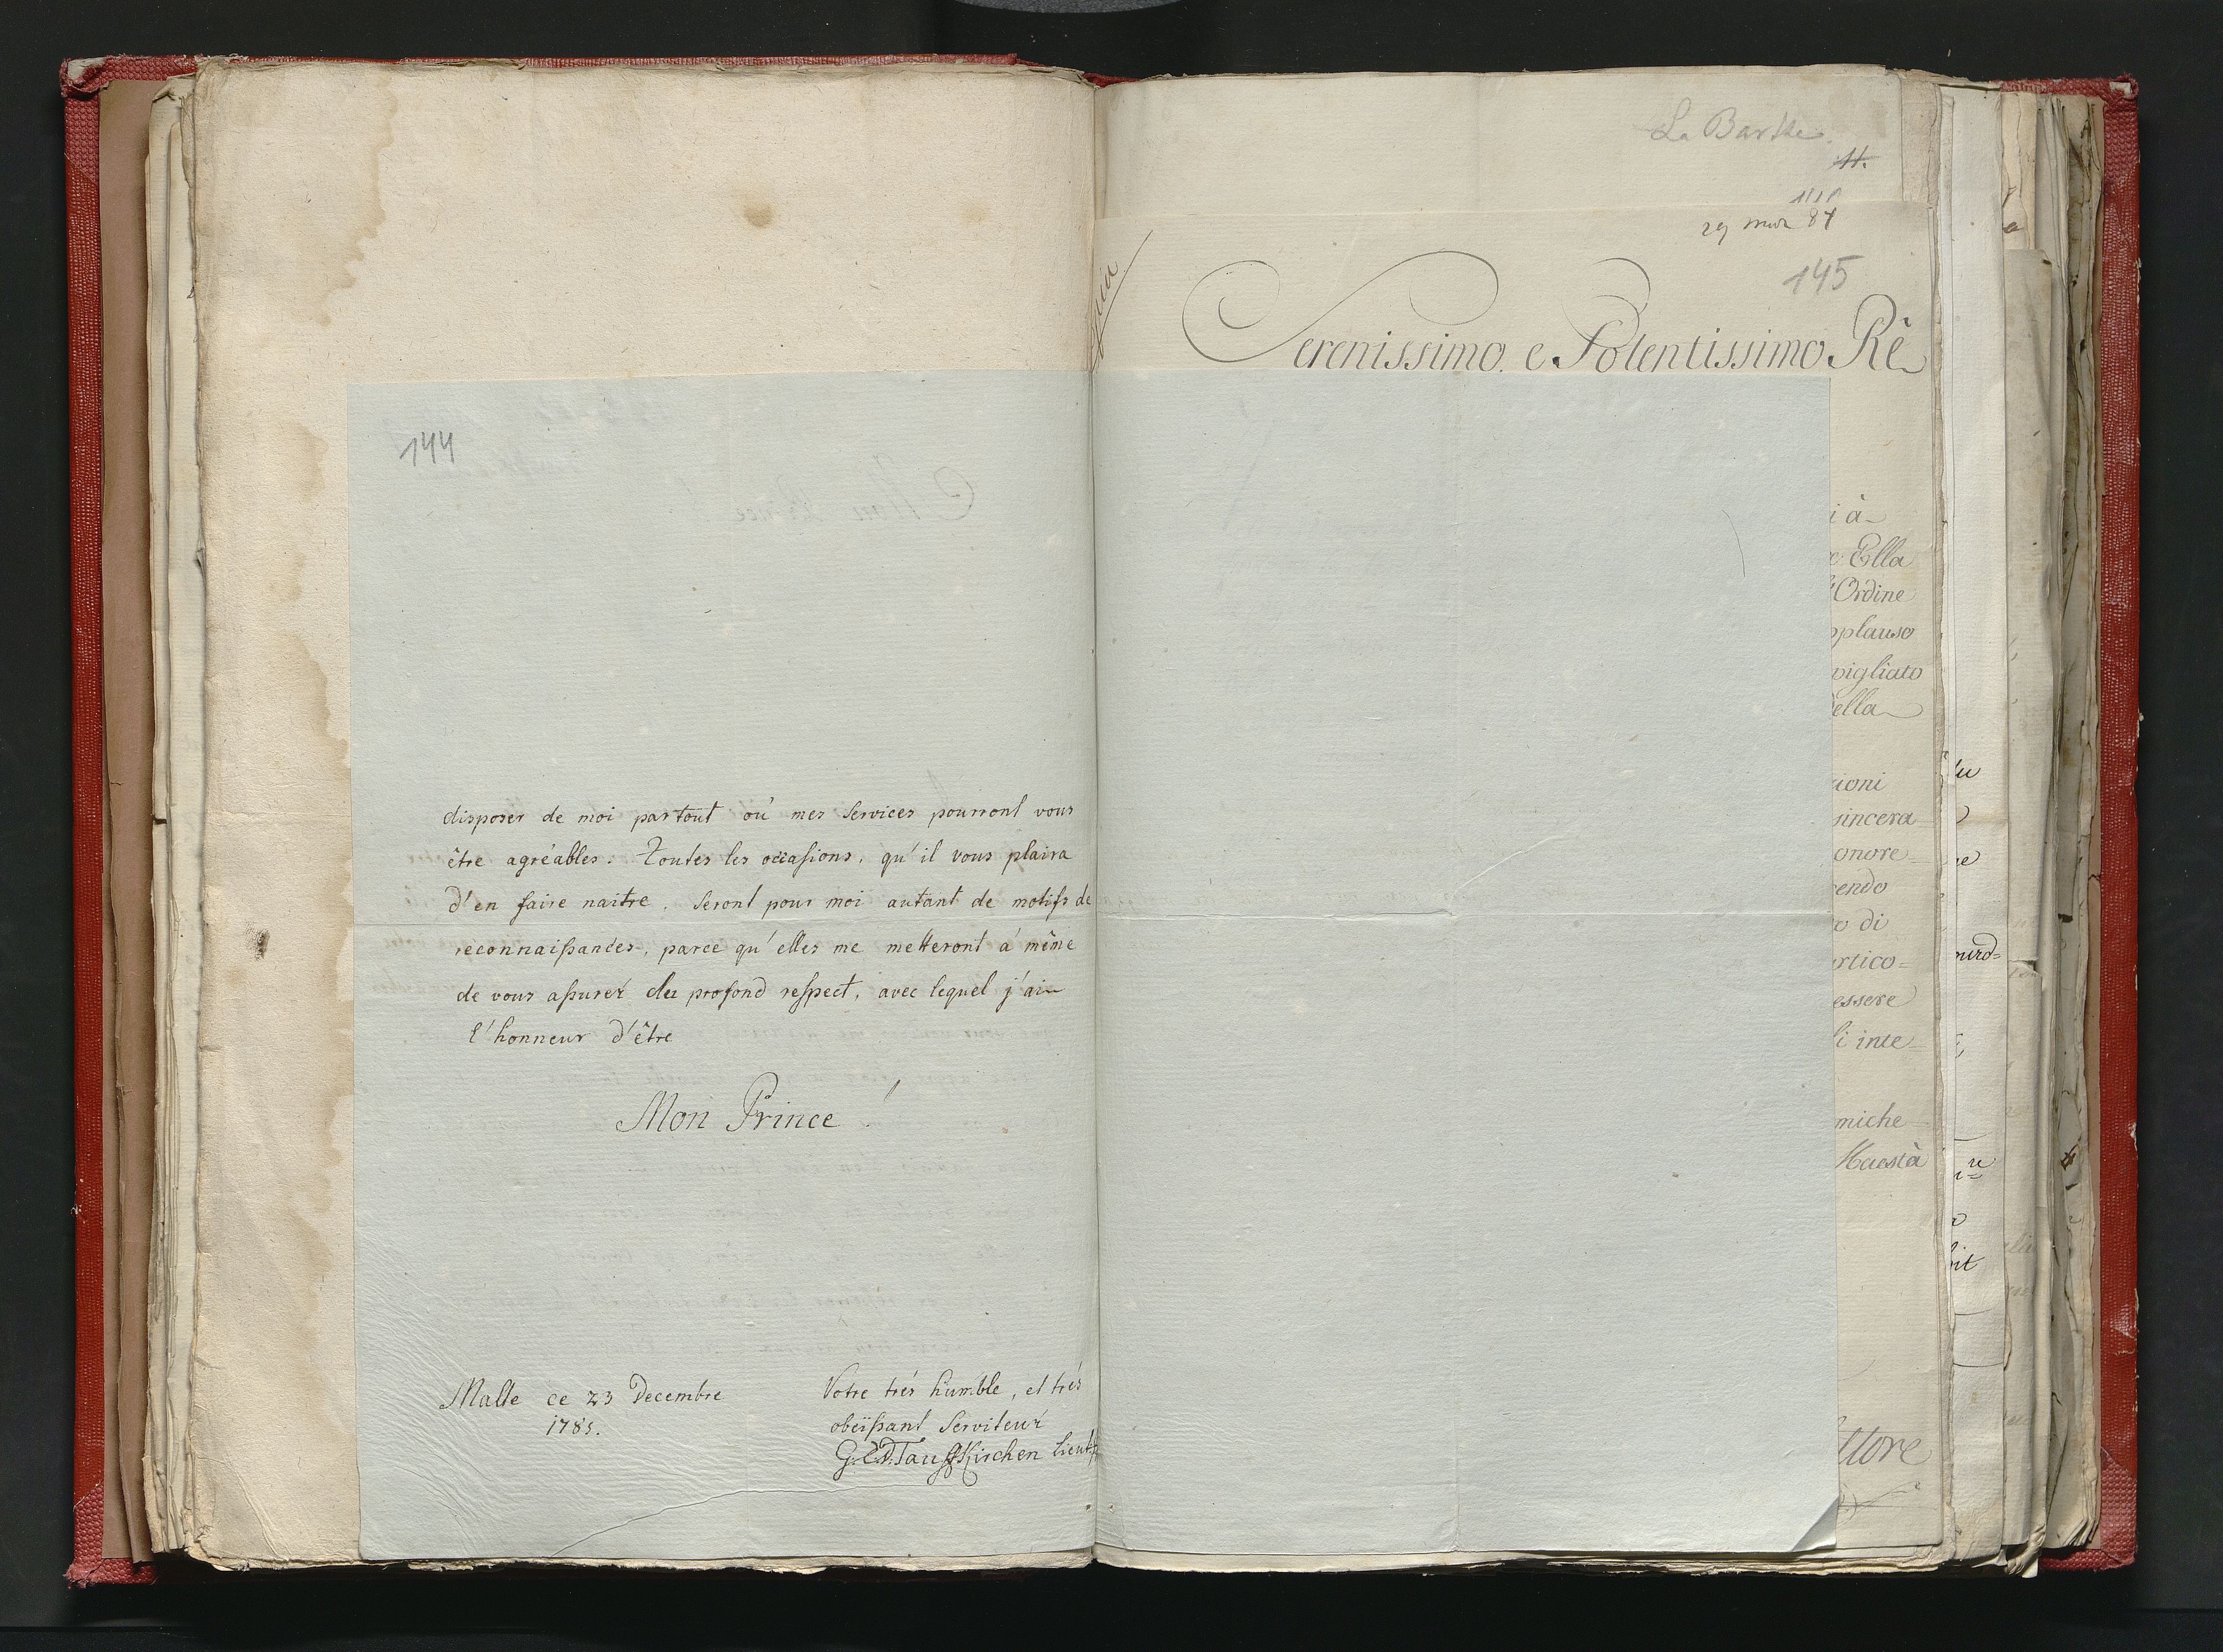 144
disposer de moi partout où mes services pourront vous
être agréables. Toutes les occasions, qu'il vous plaira
d'en faire naitre, seront pour moi autant de motifs de
reconnaißances, parce qu'elles me metteront à même
de vous aßurer du profond respect, avec lequel j'ai
l'honneur d'être
Mon Prince!
Malte ce 23 Decembre
1785.
Votre trés humble, et trés
obeïßant Serviteur
Tauffkirchen Lieut
La Barthe
11.
29 87
145
Serenissimo e Potentissimo Rê
i à
Ella
Ordine
pplauso
vigliato
ella
zioni
sincera
onore=
endo
o di
rtico=
essere
li inte=
miche
Maestà
ttore